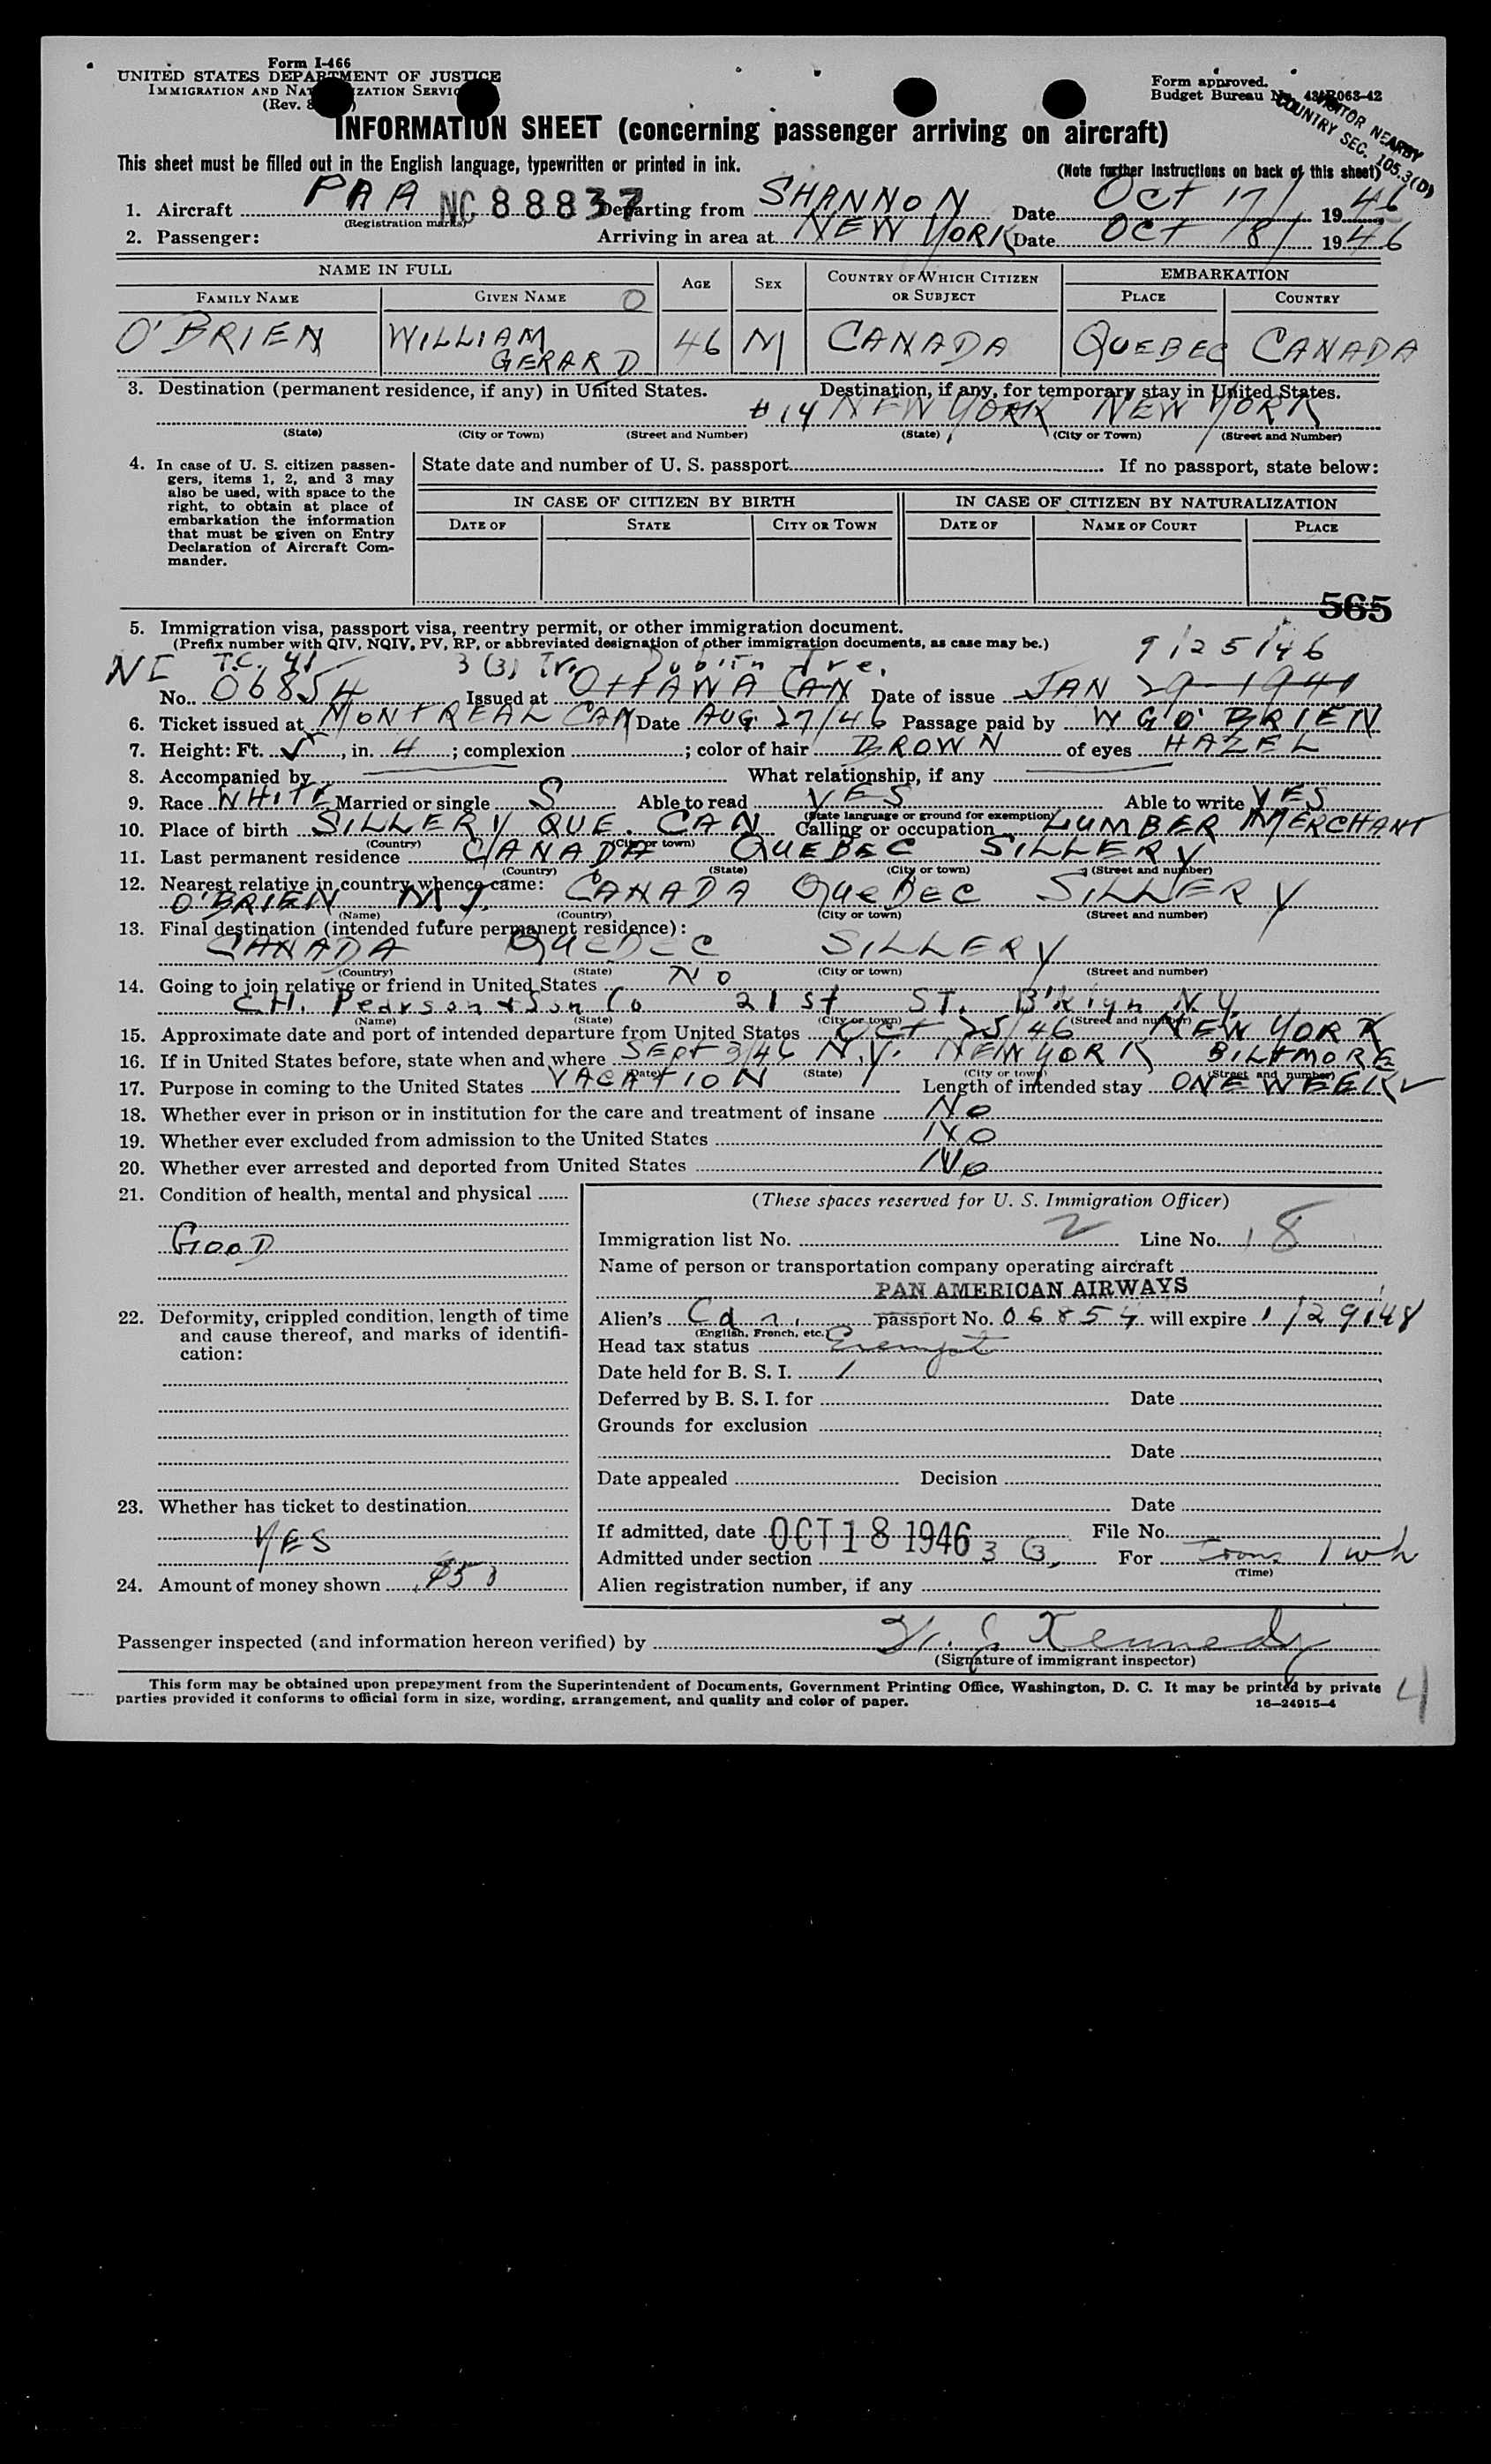 Form I-466
UNITED STATES DEPARTMENT OF JUSTICE
IMMIGRATION AND NATURALIZATION SERVICE
(Rev.
Form approved.
Budget Bureau No. 43-R063-42
VISITOR NEARBY
COUNTRY SEC. 105.3(D)
INFORMATION SHEET (concerning passenger arriving on aircraft)
This sheet must be filled out in the English language, typewritten or printed in ink. (Note further instructions on back of this sheet)
1. Aircraft PAA NC 88837 Departing from SHANNON Date OCT 17/ 1946
(Registration marks)
2. Passenger: Arriving in area at NEW YORK Date OCT 18/ 1946
NAME IN FULL AGE SEX COUNTRY OF WHICH CITIZEN OR SUBJECT EMBARKATION
FAMILY NAME GIVEN NAME PLACE COUNTRY
O'BRIEN WILLIAM GERARD 46 M CANADA QUEBEC CANADA
3. Destination (permanent residence, if any) in United States. Destination, if any, for temporary stay in United States.
#14 NEW YORK NEW YORK
(State) (City or Town) (Street and Number) (State) (City or Town) (Street and Number)
4. In case of U. S. citizen passen-
gers, items 1, 2, and 3 may
also be used, with space to the
right, to obtain at place of
embarkation the information
that must be given on Entry
Declaration of Aircraft Com-
mander.
State date and number of U. S. passport If no passport, state below:
IN CASE OF CITIZEN BY BIRTH IN CASE OF CITIZEN BY NATURALIZATION
DATE OF STATE CITY OR TOWN DATE OF NAME OF COURT PLACE
565
5. Immigration visa, passport visa, reentry permit, or other immigration document.
(Prefix number with QIV, NQIV, PV, RP, or abbreviated designation of other immigration documents, as case may be.) 9/25/46
NI T.C. 41 3(3) Tr. Dublin Ire.
No. 06854 Issued at OTTAWA CAN Date of issue JAN 29 1941
6. Ticket issued at MONTREAL CAN Date AUG 27/46 Passage paid by W G O'BRIEN
7. Height: Ft. 5, in. 4; complexion ; color of hair BROWN of eyes HAZEL
8. Accompanied by What relationship, if any
9. Race WHITE Married or single S Able to read YES Able to write YES
(State language or ground for exemption)
10. Place of birth SILLERY QUE. CAN Calling or occupation LUMBER MERCHANT
(Country) (City or town)
11. Last permanent residence CANADA QUEBEC SILLERY
(Country) (State) (City or town) (Street and number)
12. Nearest relative in country whence came: CANADA QUEBEC SILLERY
O'BRIEN M J.
(Name) (Country) (City or town) (Street and number)
13. Final destination (intended future permanent residence):
CANADA QUEBEC SILLERY
(Country) (State) (City or town) (Street and number)
14. Going to join relative or friend in United States NO
C.H. Pearson & Son Co 21 st ST. B'klyn N.Y.
(Name) (State) (City or town) (Street and number)
15. Approximate date and port of intended departure from United States OCT 25/46 NEW YORK
16. If in United States before, state when and where SEPT 3/46 N.Y. NEW YORK BILTMORE
(Date) (State) (City or town) (Street and number)
17. Purpose in coming to the United States VACATION Length of intended stay ONE WEEK
18. Whether ever in prison or in institution for the care and treatment of insane NO
19. Whether ever excluded from admission to the United States NO
20. Whether ever arrested and deported from United States NO
21. Condition of health, mental and physical
GOOD
22. Deformity, crippled condition, length of time
and cause thereof, and marks of identifi-
cation:
23. Whether has ticket to destination
YES
24. Amount of money shown
(These spaces reserved for U. S. Immigration Officer)
Immigration list No. 2 Line No. 18
Name of person or transportation company operating aircraft
PAN AMERICAN AIRWAYS
Alien's Cdn. passport No. 06854 will expire 1/29/48
(English, French, etc.)
Head tax status Exempt
Date held for B. S. I. /
Deferred by B. S. I. for Date
Grounds for exclusion
Date
Date appealed Decision
Date
If admitted, date OCT 18 1946 File No.
Admitted under section 3 (3) For Trans 1 wk
(Time)
Alien registration number, if any
Passenger inspected (and information hereon verified) by Kennedy
(Signature of immigrant inspector)
This form may be obtained upon prepayment from the Superintendent of Documents, Government Printing Office, Washington, D. C. It may be printed by private
parties provided it conforms to official form in size, wording, arrangement, and quality and color of paper. 16—24915-4
4